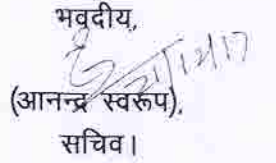 भवदीय,
(आनन्द स्वरूप),
सचिव।